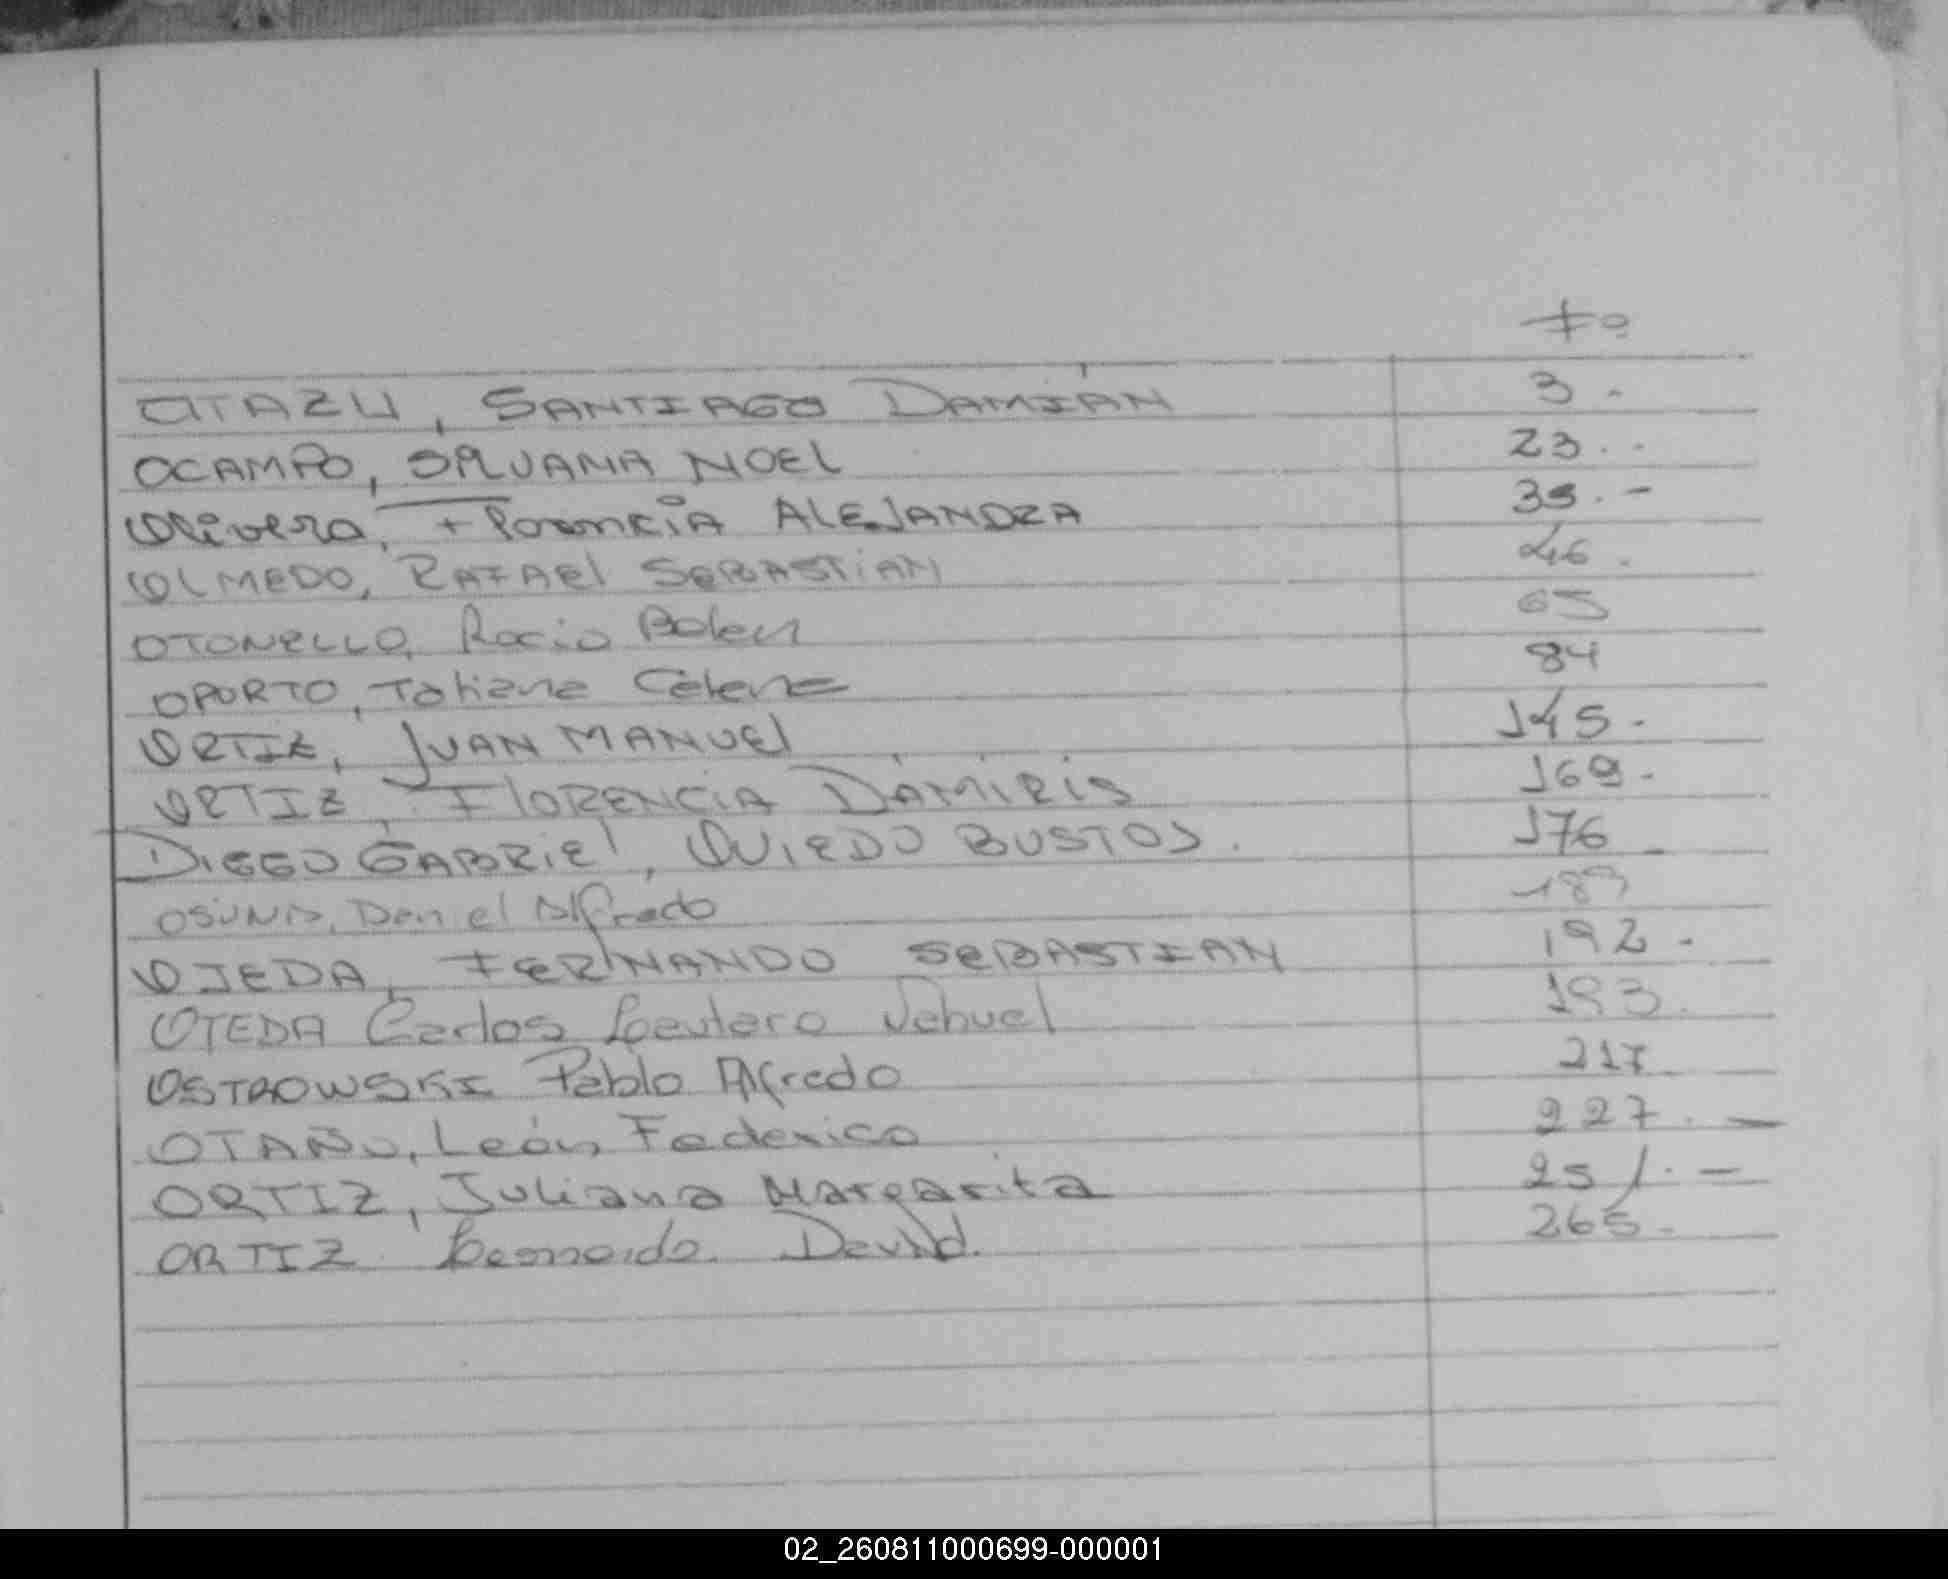 Fº
OTAZU, SANTIAGO DAMIÁN 3.-
OCAMPO, SILVANA NOEL 23..
Olivera, Florencia ALEJANDRA 39.-
OLMEDO, RAFAEl SEBASTIAN 46.
OTONELLO, Rocio Belen 65
OPORTO, Tatiana Celene 84
ORTIZ, JUAN MANUEl 145.
ORTIZ, FlORENCIA DAMIRIS 169.-
DIEGO GABRIEl, OVIEDO BUSTOS. 176-
OSUNA, Daniel Alfredo 189
OJEDA, FERNANDO SEBASTIAN 192.
OJEDA Carlos Lautaro Nahuel 193.
OSTROWSKI Pablo Alfredo 217
OTAÑO, León Federico 227.-
ORTIZ, Juliana Margarita 251.-
ORTIZ Leonardo David. 265.
02_260811000699-000001